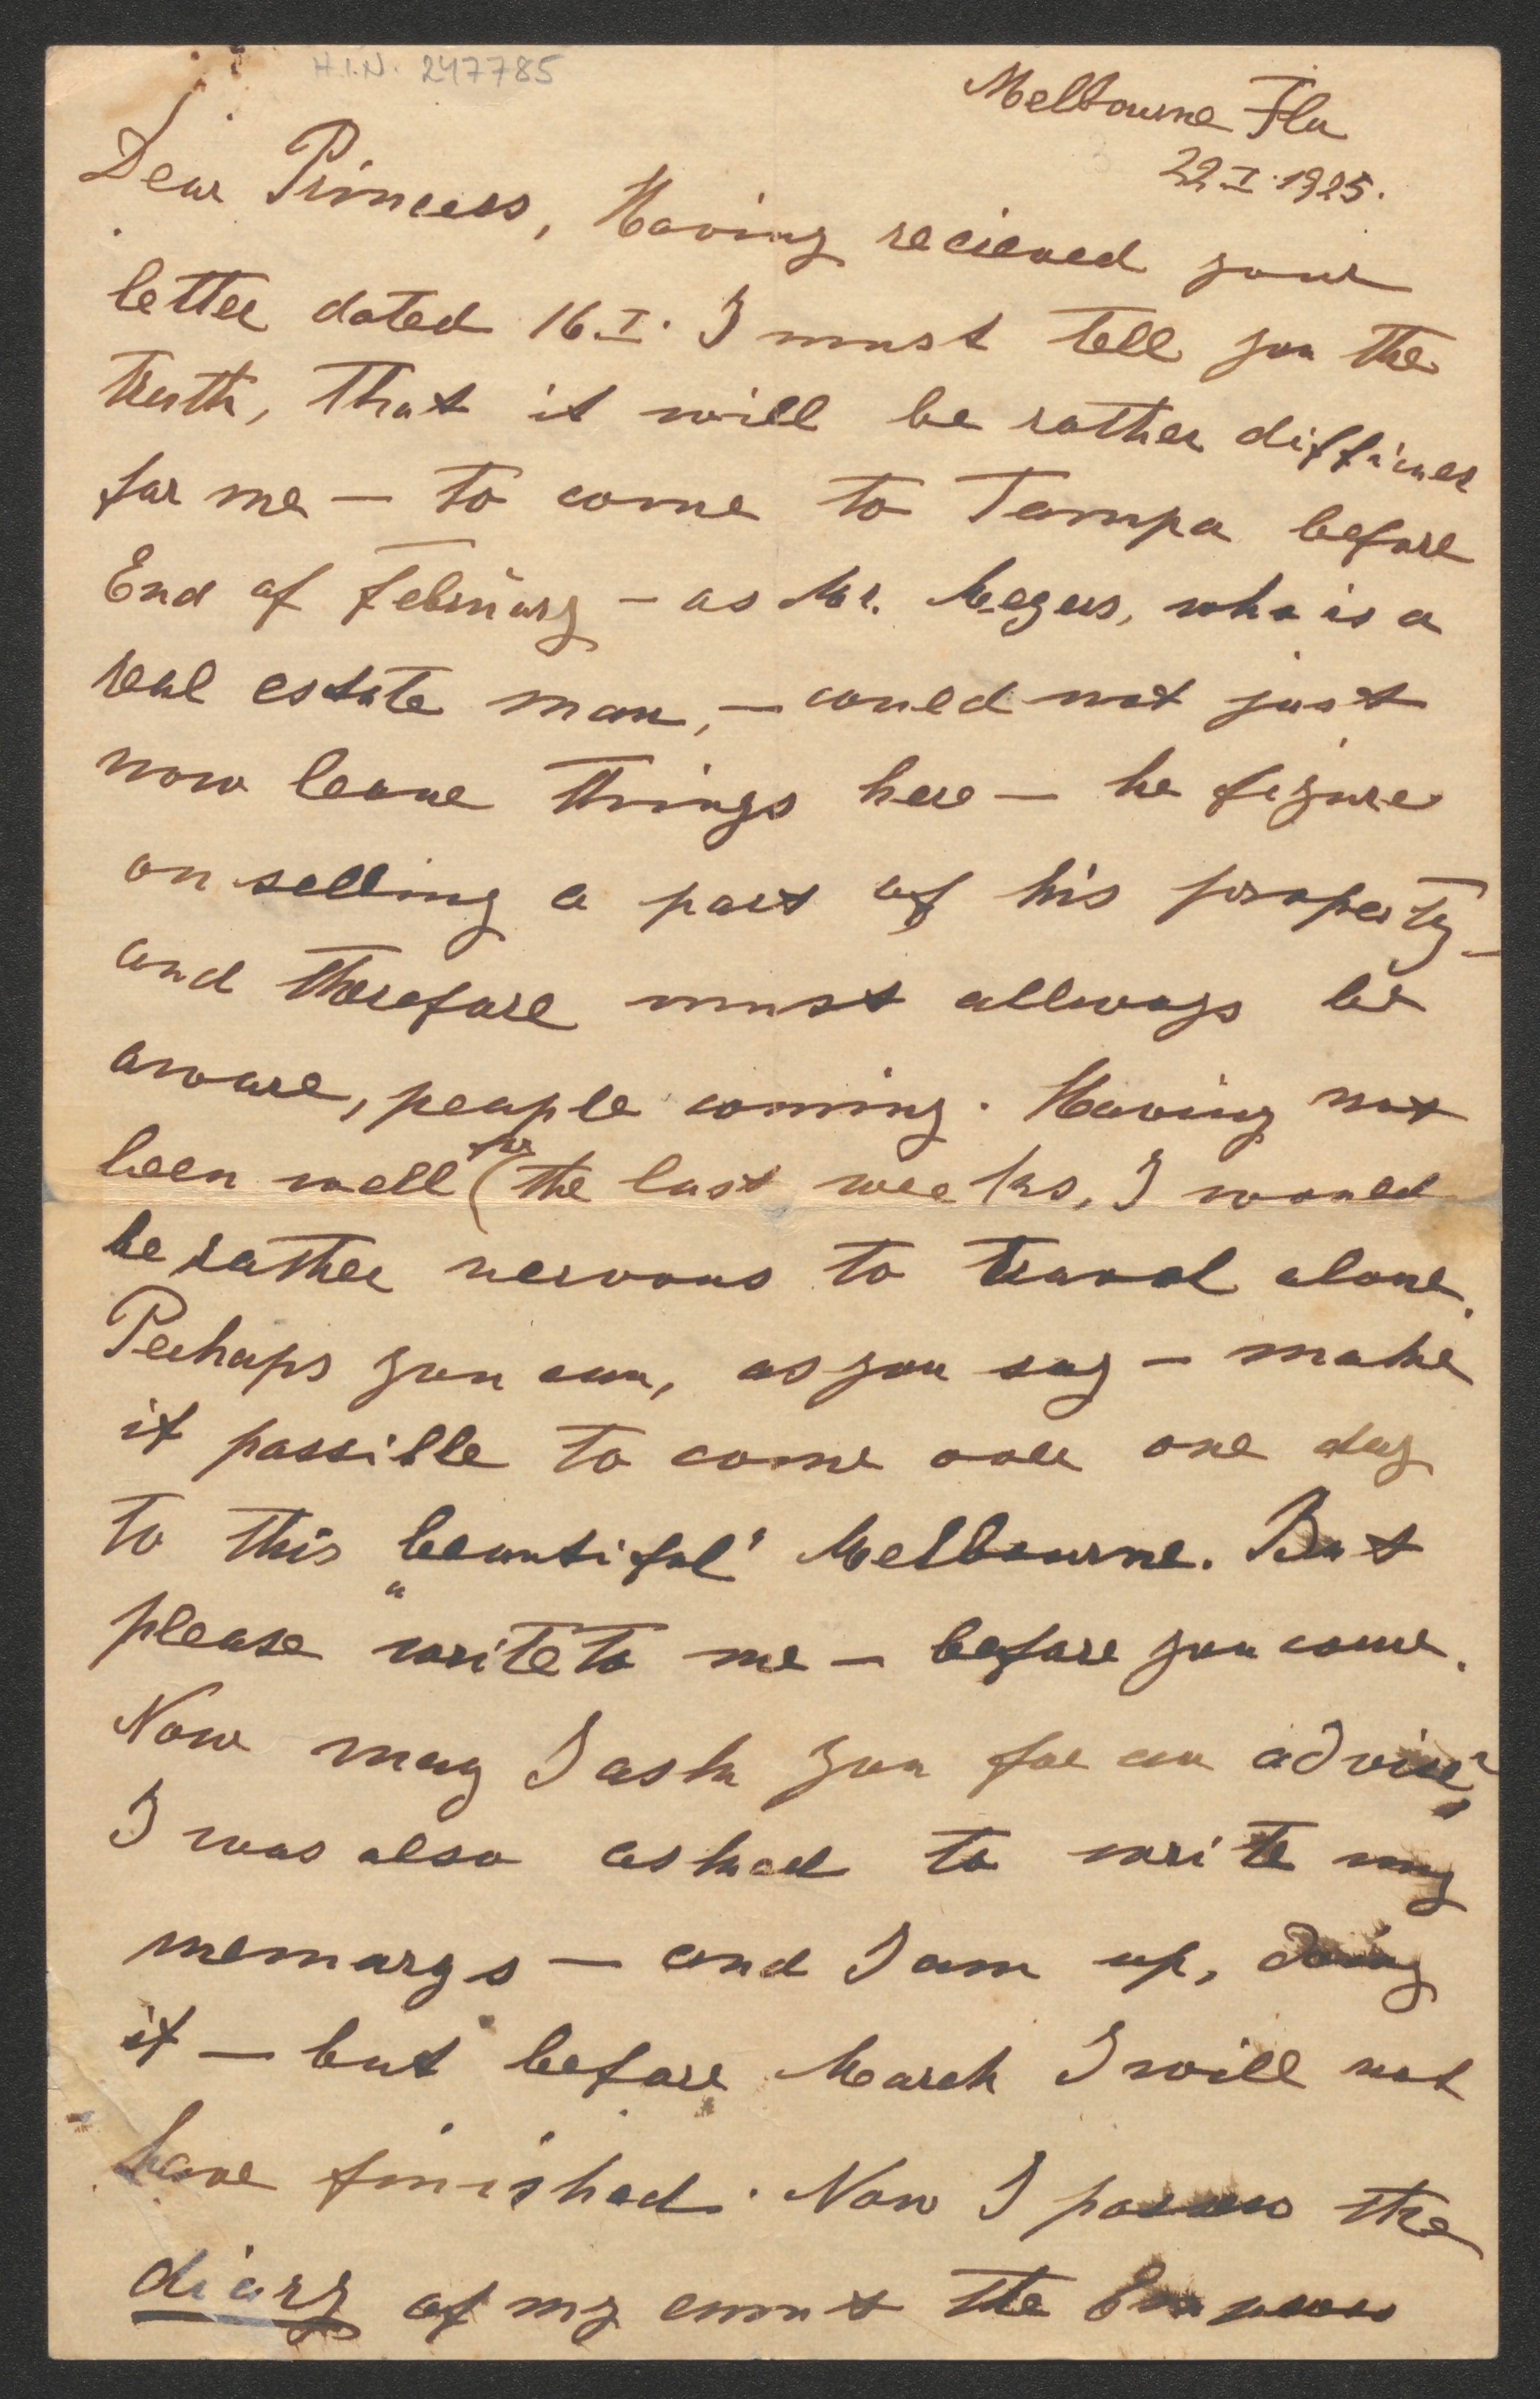 H.I.N. 247785
Melbourne Fla
22 I. 1925.
Dear Princess, Having recieved your
letter dated 16.I. I must tell you the
truth, that it will be rather difficult
for me — to come to Tampa before
End of February — as Mr. Megers, who is a
real estate man, — could not just
now leave things here — he figure
on selling a part of his property —
and therefore must allways be
aware, people coming. Having not
been well for the last weeks, I would
be rather nervous to travel alone.
Perhaps you can, as you say — make
it possible to come over one day
to this „beautiful" Melbourne. But
please write to me — before you come.
Now may I ask you for an advise?
I was also asked to write my
memorys — and I am up, doing
it — but before March I will not
have finished. Now I posses the
diary of my aunt the Empress